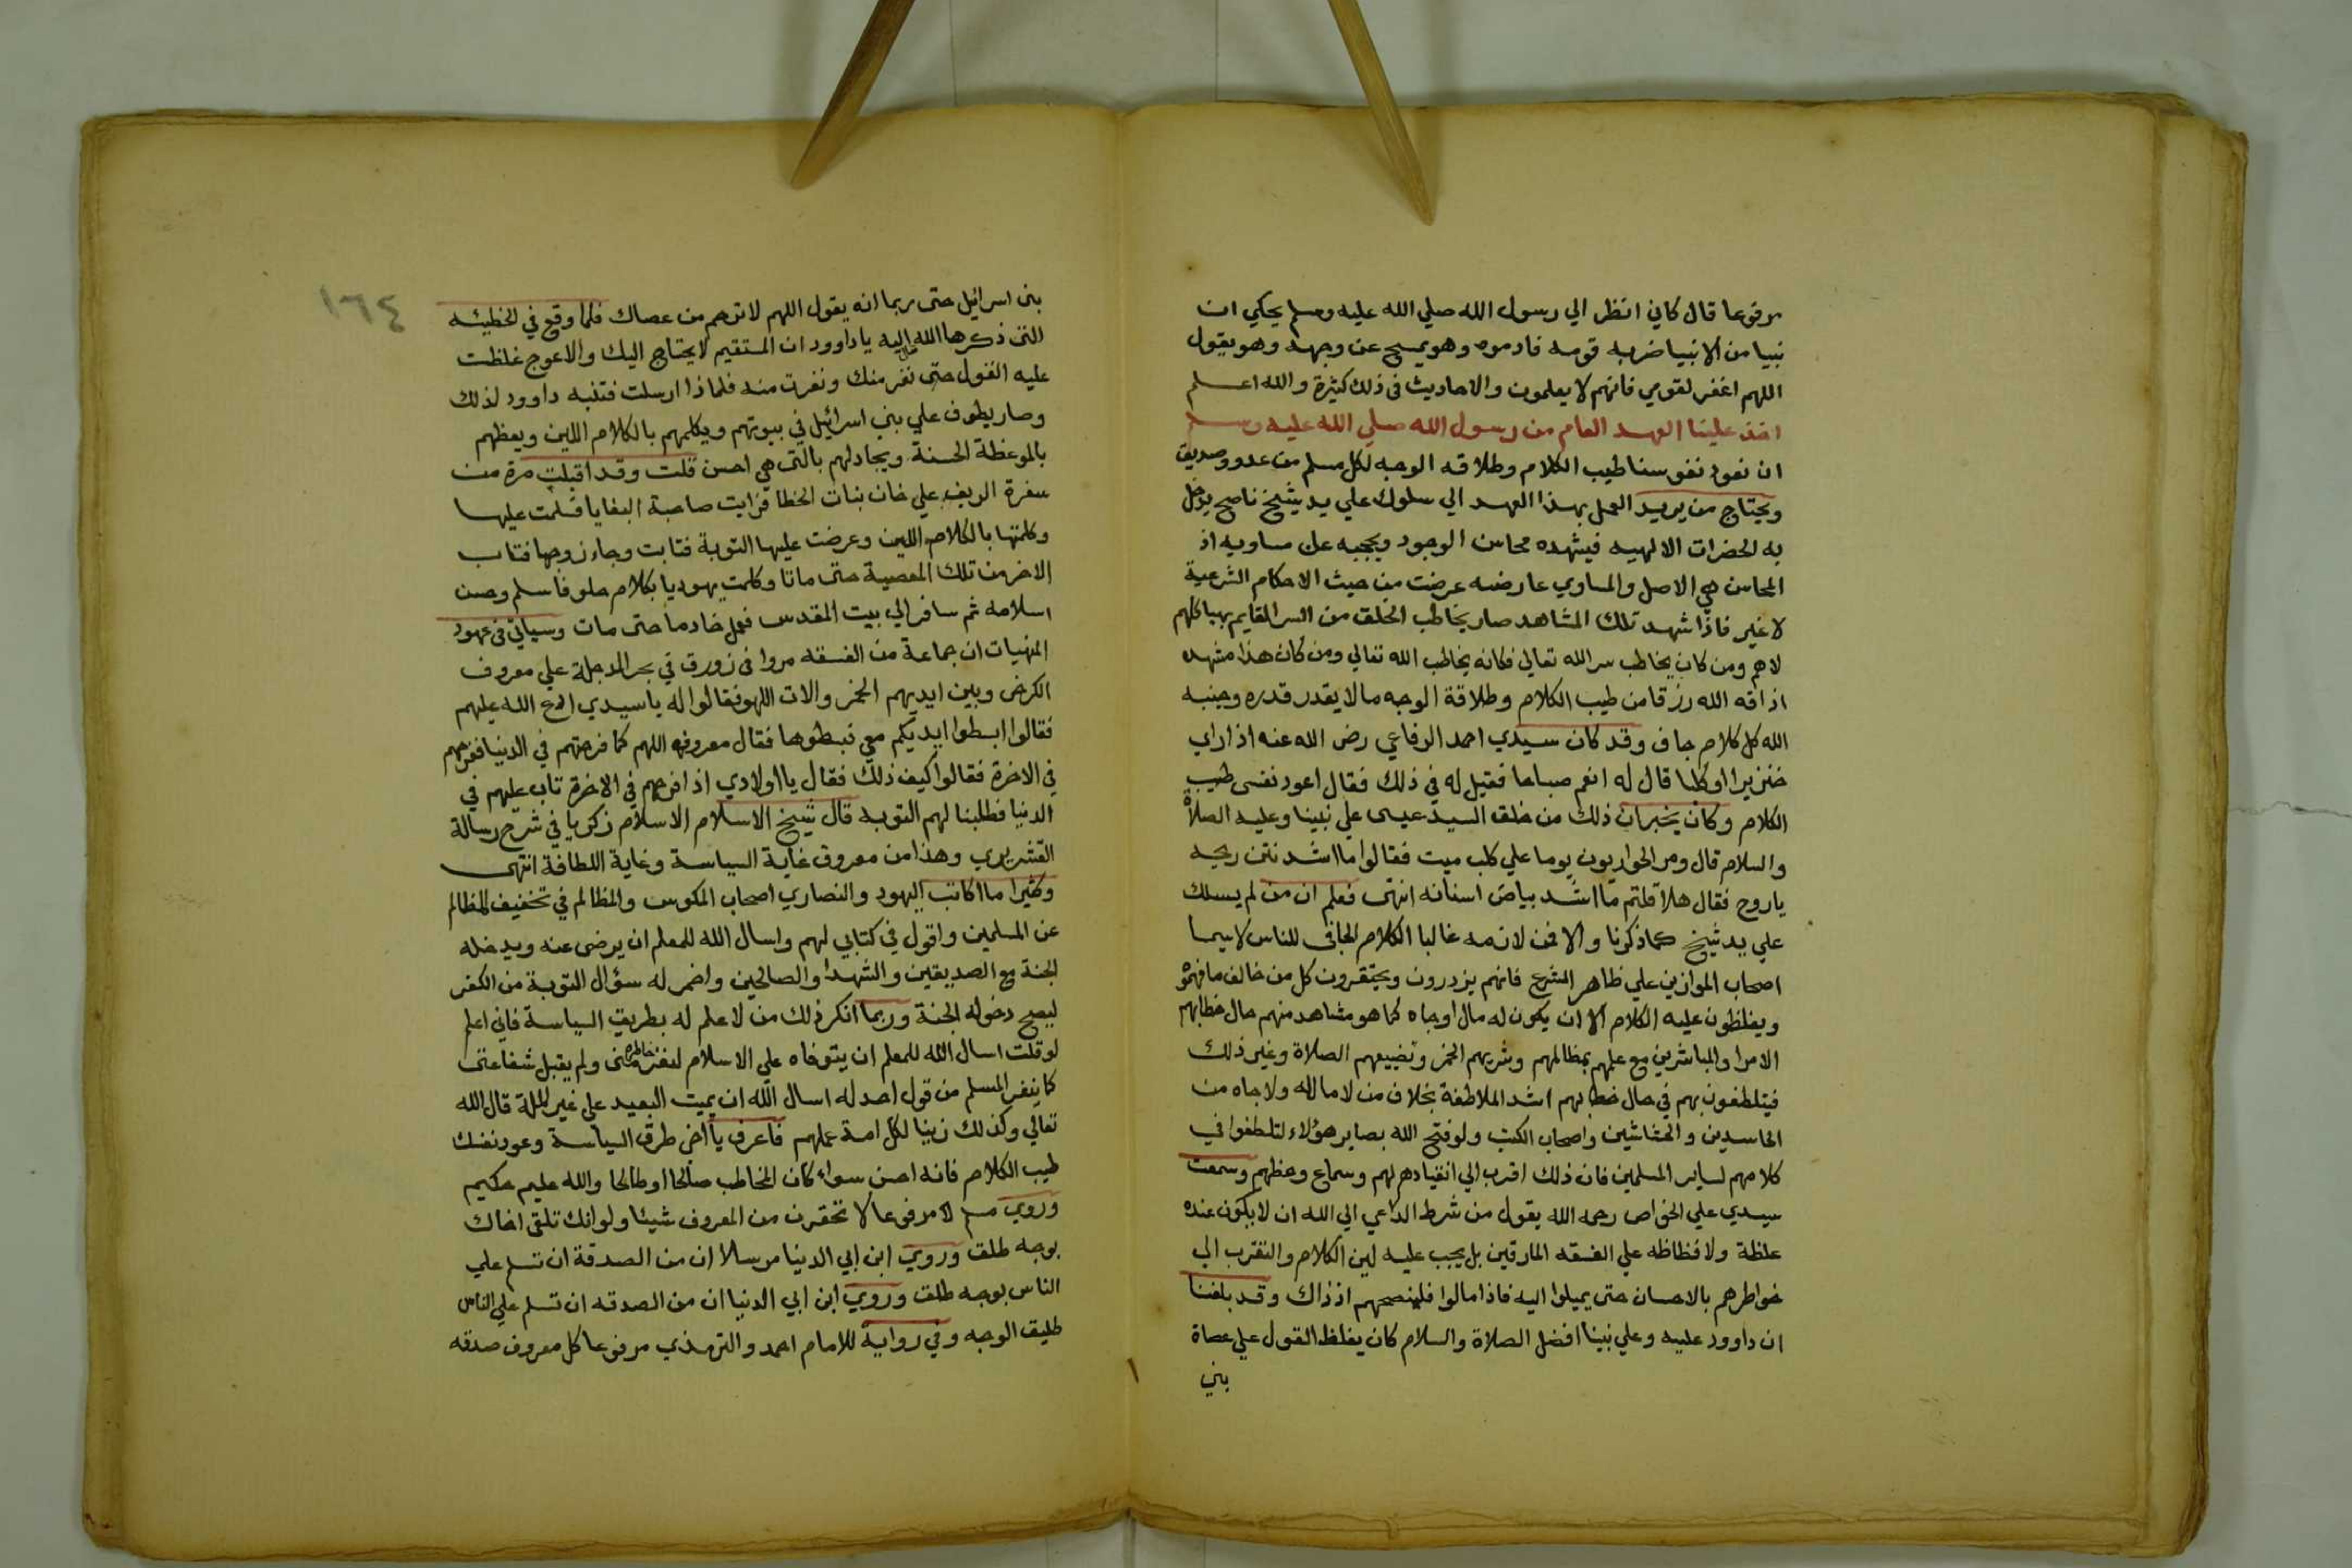 مرفوعا قال كاني انظر الي رسول الله صلي الله عليه وسلم يحكي ان
نبيا من الانبيا ضربه قومه فادموه وهو يمسح عن وجهه وهو يقول
اللهم اغفر لقومي فانهم لا يعلمون والاحاديث في ذلك كثيرة والله اعلم
اخذ علينا العهد العام من رسول الله صلي الله عليه وسلم
ان نعود نفوسنا طيب الكلام وطلاقه الوجه لكل مسلم من عدو وصديق
ويحتاج من يريد العمل بهذا العهد الي سلوك علي يد شيخ ناصح يدخل
به لحضرات الالهيه فيشهده محاسن الوجود ويحجبه عن مساويه اذ
المحاسن هي الاصل والمساوي عارضه عرضت من حيث الاحكام الشرعية
لا غير فاذا شهد تلك المشاهد صار يخاطب الخلق من السر القايم بهياكلهم
لاهم ومن كان يخاطب سر الله تعالي فكانه يخاطب الله تعالي ومن كان هذا مشهده
اذاقه الله رزقا من طيب الكلام وطلاقة الوجه ما لا يقدر قدره وجنبه
الله كل كلام جاف وقد كان سيدي احمد الرفاعي رضي الله عنه اذا راي
خنزيرا او كلبا قال له انعم صباحا فقيل له في ذلك فقال اعود نفسي طيب
الكلام وكان يخبر ان ذلك من خلق السيد عيسي علي نبينا وعليه الصلاة
والسلام قال ومر الحواريون يوما علي كلب ميت فقالوا ما اشد نتن ريحه
يا روح فقال هلا قلتم ما اشد بياض اسنانه انتهي فعلم ان من لم يسلك
علي يد شيخ كما ذكرنا والا فمن لازمه غالبا الكلام الجافي للناس لا سيما
اصحاب الموازين علي ظاهر الشرع فانهم يزدرون ويحتقرون كل من خالف ما فهموه
ويغلظون عليه الكلام الا ان يكون له مال او جاه كما هو مشاهد منهم حال خطابهم
الامرا والمباشرين مع علمهم بمظالمهم وشربهم الخمر وتضييعهم الصلاة وغير ذلك
فيتلطفون بهم في حال خطابهم اشد الملاطفة بخلاف من لا مال له ولا جاه من
الحاسدين والحشاشين واصحاب الكتب ولو فتح الله بصاير هؤلاء لتلطفوا في
كلامهم لساير المسلمين فان ذلك اقرب الي انقيادهم لهم وسماع وعظهم وسمعت
سيدي علي الخواص رحمه الله يقول من شرط الداعي الي الله ان لا يكون عنده
غلظة ولا فظاظه علي الفسقه المارقين بل يجب عليه لين الكلام والتقرب الي
خواطرهم بالاحسان حتى يميلوا اليه فاذا مالوا فلينصحهم اذ ذاك وقد بلغنا
ان داوود عليه وعلي نبينا افضل الصلاة والسلام كان يغلظ القول علي عصاة
بني
١٦٤
بني اسرائيل حتى ربما انه يقول اللهم لا ترحم من عصاك فلما وقع في الخطيئه
التي ذكرها الله اليه يا داوود ان المستقيم لا يحتاج اليك والاعوج غلظت
عليه القول حتى نفر منك ونفرت منه فلماذا ارسلت فتنبه داوود لذلك
وصار يطوف علي بني اسرائيل في بيوتهم ويكلمهم بالكلام اللين ويعظهم
بالموعظة الحسنة ويجادلهم بالتي هي احسن قلت وقد اقبلت مرة من
سفرة الريف علي خان بنات الخطا فرايت صاحبة البغايا فسلمت عليها
وكلمتها بالكلام اللين وعرضت عليها التوبة فتابت وجاء زوجها فتاب
الاخر من تلك المعصية حتى ماتا وكلمت يهوديا بكلام حلو فاسلم وحسن
اسلامه ثم سافر الي بيت المقدس فعمل خادما حتى مات وسياتي في عهود
المنهيات ان جماعة من الفسقه مروا في زورق في بحر الدجلة علي معروف
الكرخي وبين ايديهم الخمر والات اللهو فقالوا له يا سيدي ادع الله عليهم
فقالوا ابسطوا ايديكم معي فبسطوها فقال معروف اللهم كما فرحتهم في الدنيا ففرحهم
في الاخرة فقالوا كيف ذلك فقال يا اولادي اذا فرحهم في الاخرة تاب عليهم في
الدنيا فطلبنا لهم التوبه قال شيخ الاسلام الاسلام زكريا في شرح رسالة
القشيري وهذا من معروف غاية السياسة وغاية اللطافة انتهى
وكثيرا ما اكاتب اليهود والنصاري اصحاب المكوس والمظالم في تخفيف المظالم
عن المسلمين واقول في كتابي لهم واسال الله للمعلم ان يرضى عنه ويدخله
الجنة مع الصديقين والشهدا والصالحين واضمر له سؤال التوبة من الكفر
ليصح دخوله الجنة وربما انكر ذلك من لا علم له بطريق السياسة فاني اعلم
لو قلت اسال الله للمعلم ان يتوفاه علي الاسلام لنفر خاطره مني ولم يقبل شفاعتي
كما ينفر المسلم من قول احد له اسال الله ان يميت البعيد علي غير الملة قال الله
تعالي وكذلك زينا لكل امة عملهم فاعرف يا اخي طرق السياسة وعود نفسك
طيب الكلام فانه احسن سواء كان المخاطب صالحا او طالحا والله عليم حكيم
وروي مسلم مرفوعا لا تحقرن من المعروف شيئا ولو انك تلقى اخاك
بوجه طلق وروي ابن ابي الدنيا مرسلا ان من الصدقة ان تسلم علي
الناس بوجه طلق وروي ابن ابي الدنيا ان من الصدقه ان تسلم علي الناس
طليق الوجه وفي رواية للامام احمد والترمذي مرفوعا كل معروف صدقه